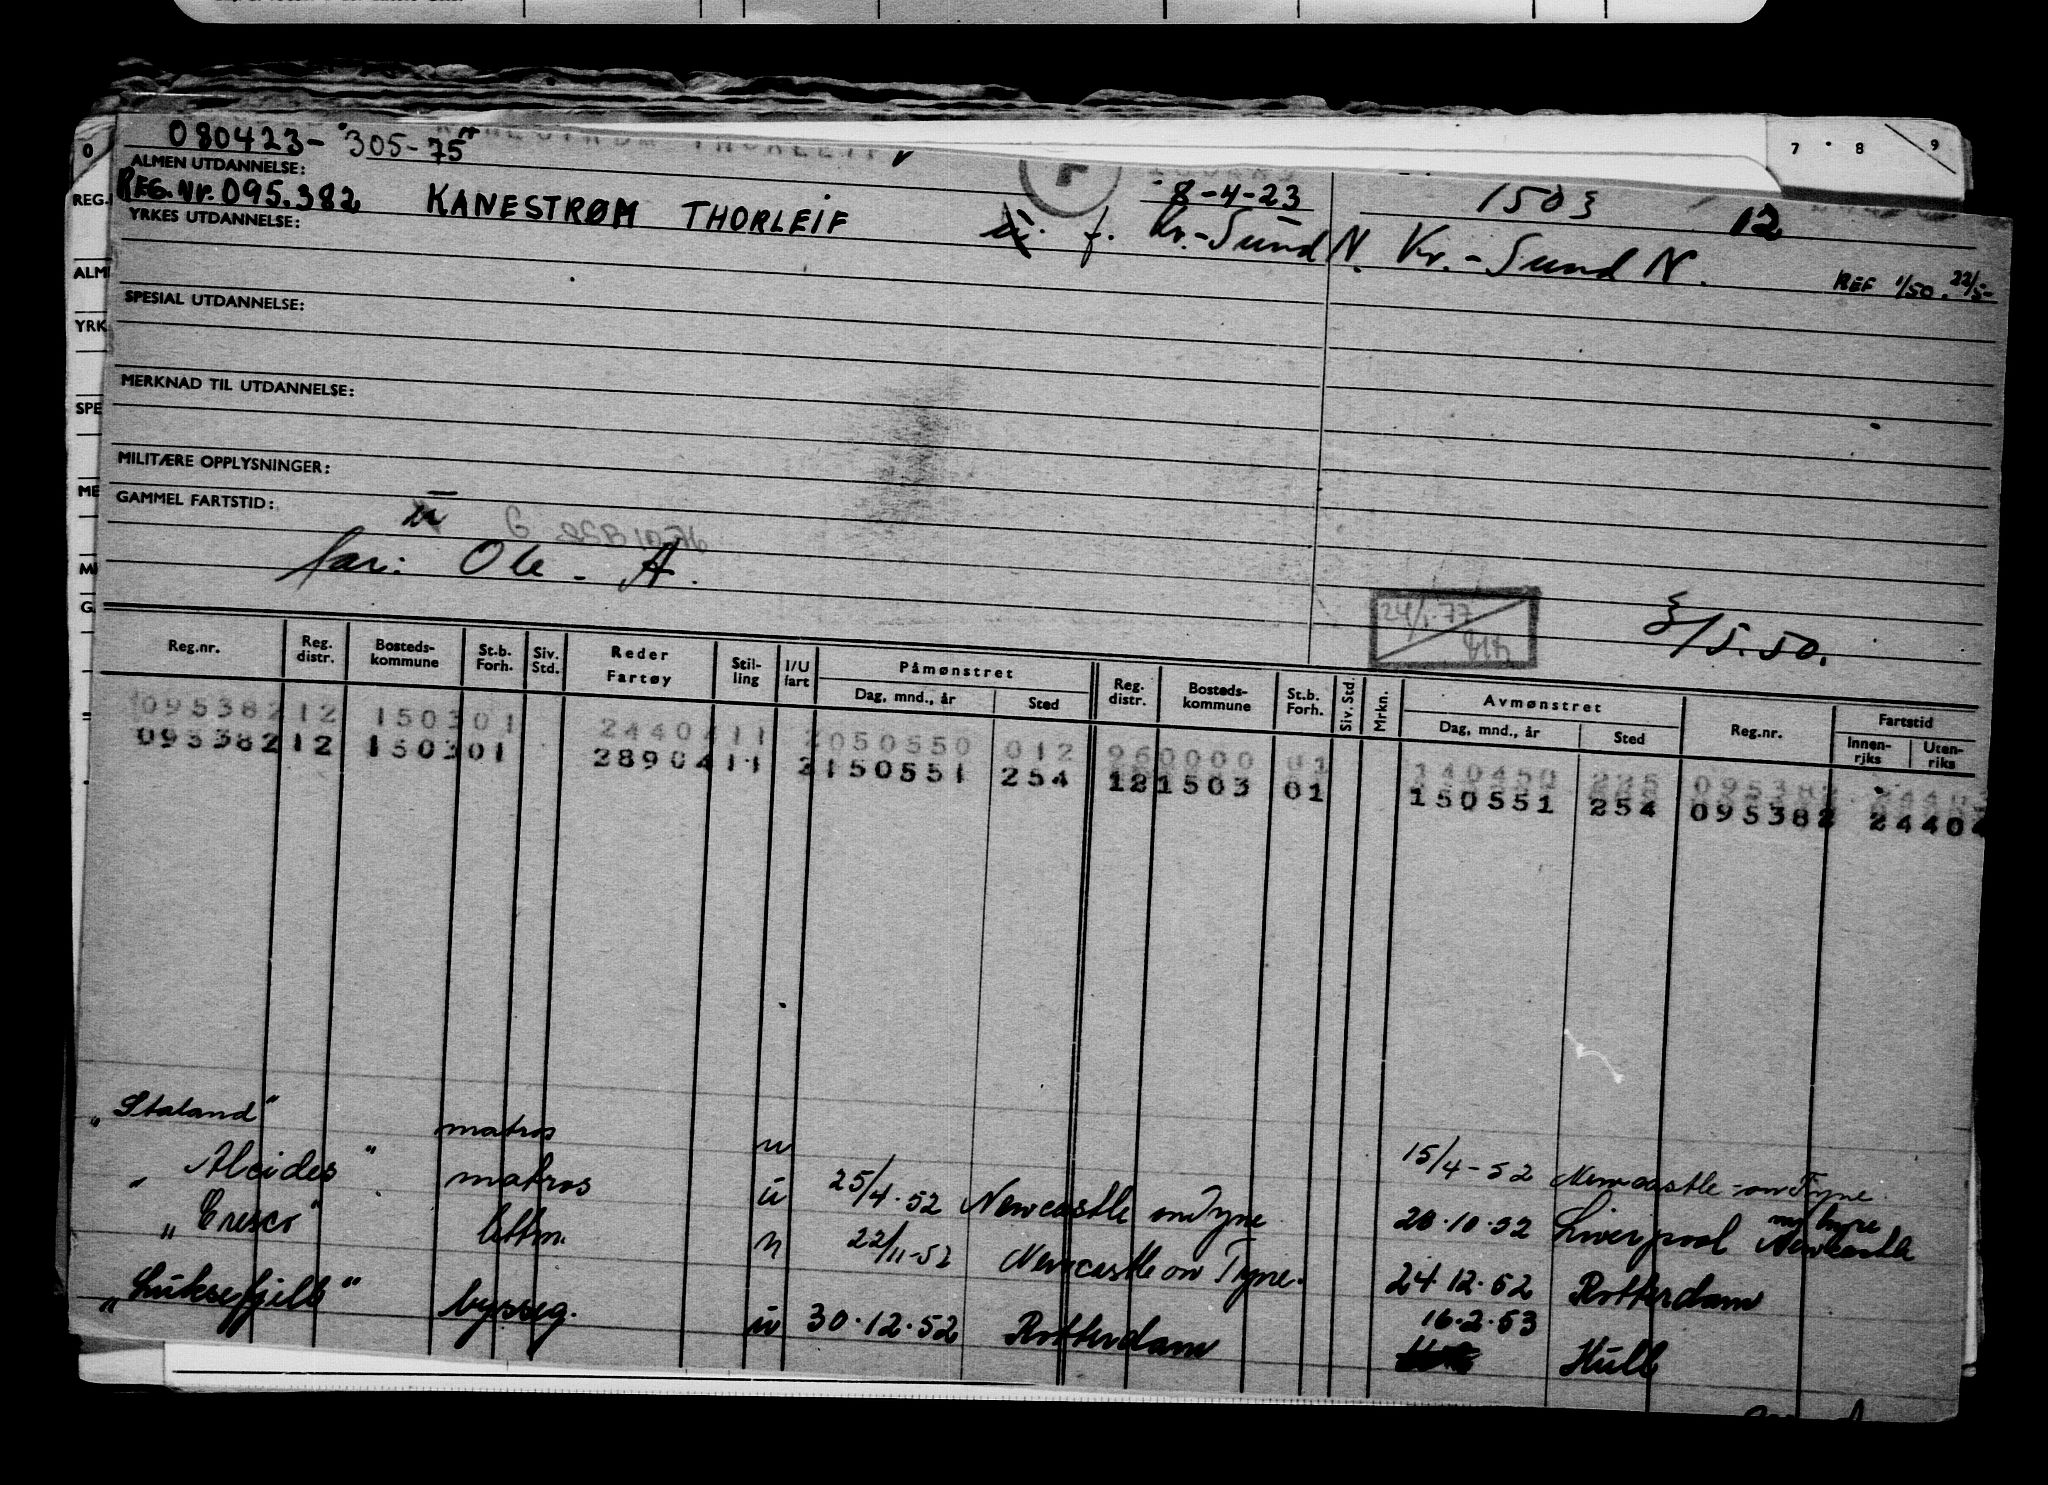 080423-305-75
ALMEN UTDANNELSE:
REG. NR. 095.382 KANESTRØM THORLEIF 8-4-23 1503 12
YRKES UTDANNELSE: f. Kr.-Sund N. Kr.-Sund N. REF 1/50. 22/5-
SPESIAL UTDANNELSE:
MERKNAD TIL UTDANNELSE:
MILITÆRE OPPLYSNINGER:
GAMMEL FARTSTID:
far: Ole - A.
24/1-77
3/5.50.
Reg.nr. Reg. distr. Bosteds-kommune St.b. Forh. Siv. Std. Reder Fartøy Stil-ling I/U fart Påmønstret Dag, mnd., år Sted Reg. distr. Bosteds-kommune St.b. Forh. Siv. Std. Mrkn. Avmønstret Dag, mnd., år Sted Reg.nr. Fartstid Innen-rjks Uten-riks
095382 12 1503 01 2440411 2050550 012 960000 01 140450 225 095382
095382 12 1503 01 2890411 2150551 254 12 1503 01 150551 254 095382 24404
"Staland" matros u 15/4-52 Newcastle-on Tyne
"Alcides" matros u 25/4.52 Newcastle on Tyne 20.10.52 Liverpool ny hyre Newcastle
"Cresco" lettm. u 22/11-52 Newcastle on Tyne. 24.12.52 Rotterdam
"Luksefjell" byssg. u 30.12.52 Rotterdam 16.2.53 Hull